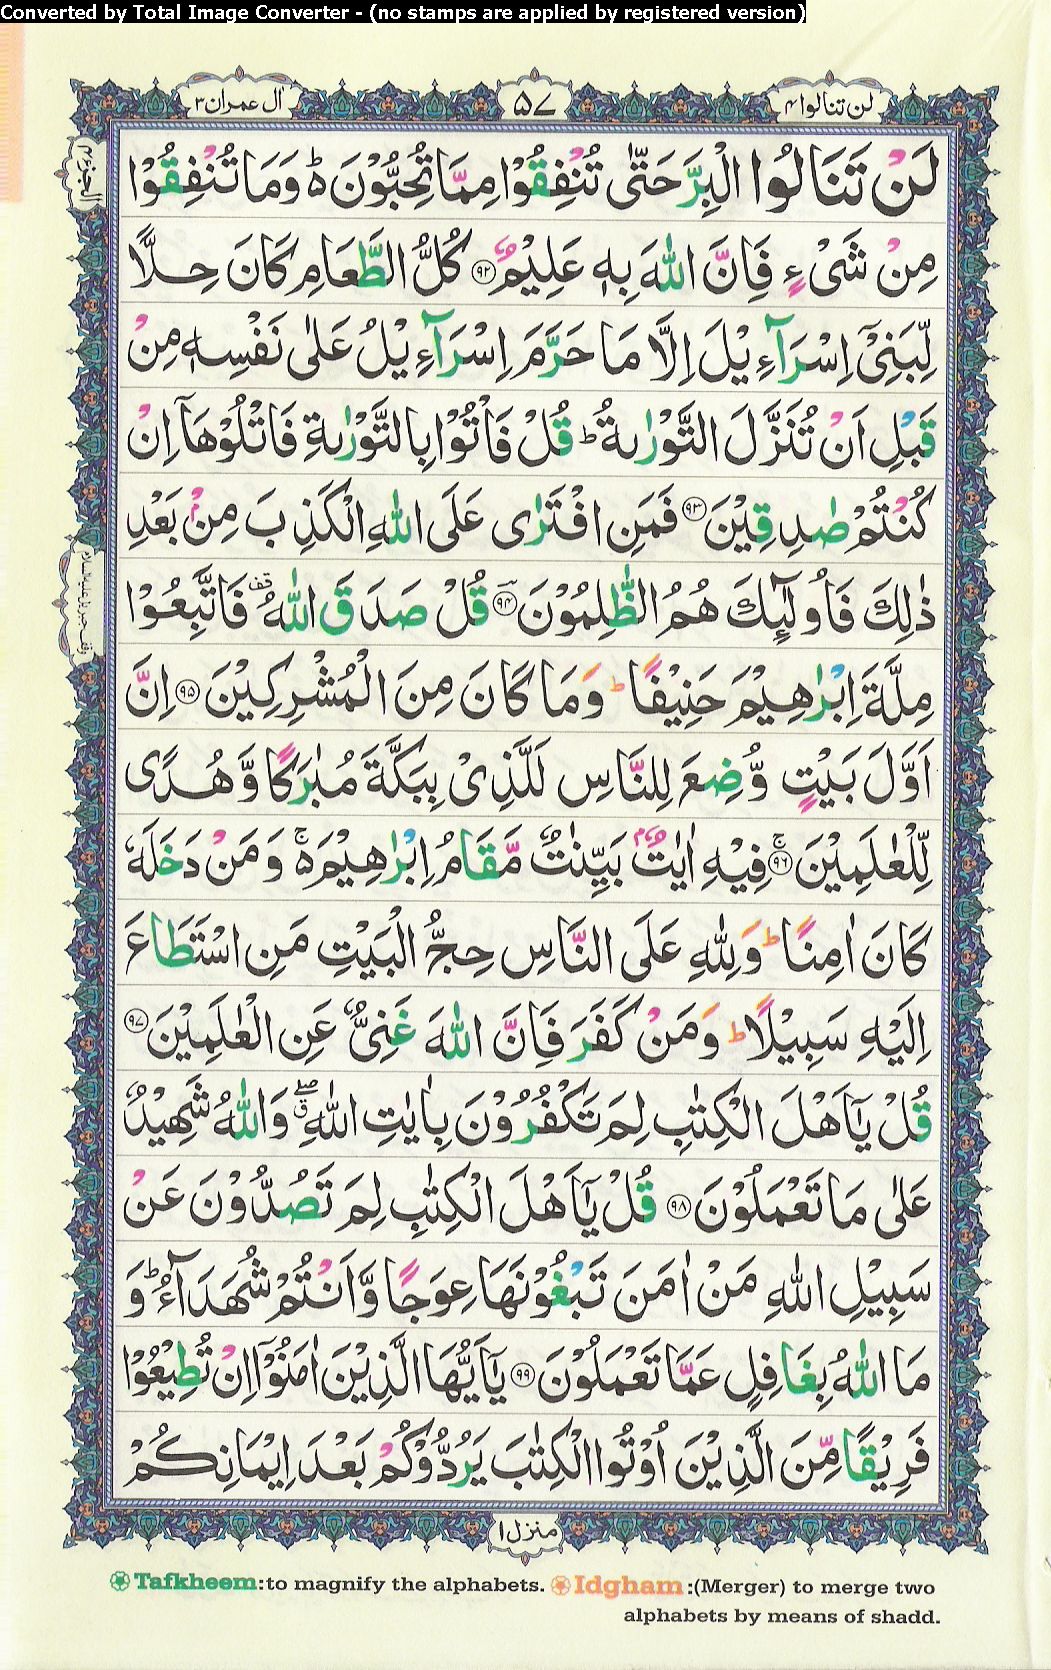 Converted by Total Image Converter - (no stamps are applied by registered version)
لن تنالوا ۴
۵۷
اٰل عمرٰن ۳
لَنْ تَنَالُوا الْبِرَّ حَتّٰى تُنْفِقُوْا مِمَّا تُحِبُّوْنَ ۬ؕ وَمَا تُنْفِقُوْا
مِنْ شَىْءٍ فَاِنَّ اللّٰهَ بِهٖ عَلِيْمٌ ۝۹۲ كُلُّ الطَّعَامِ كَانَ حِلًّا
لِّبَنِىْۤ اِسْرَآءِيْلَ اِلَّا مَا حَرَّمَ اِسْرَآءِيْلُ عَلٰى نَفْسِهٖ مِنْ
قَبْلِ اَنْ تُنَزَّلَ التَّوْرٰىةُ ؕ قُلْ فَاْتُوْا بِالتَّوْرٰىةِ فَاتْلُوْهَاۤ اِنْ
كُنْتُمْ صٰدِقِيْنَ ۝۹۳ فَمَنِ افْتَرٰى عَلَى اللّٰهِ الْكَذِبَ مِنْۢ بَعْدِ
ذٰلِكَ فَاُولٰٓئِكَ هُمُ الظّٰلِمُوْنَ ۝۹۴ؔ قُلْ صَدَقَ اللّٰهُ قف فَاتَّبِعُوْا
مِلَّةَ اِبْرٰهِيْمَ حَنِيْفًا ؕ وَمَا كَانَ مِنَ الْمُشْرِكِيْنَ ۝۹۵ اِنَّ
اَوَّلَ بَيْتٍ وُّضِعَ لِلنَّاسِ لَلَّذِىْ بِبَكَّةَ مُبٰرَكًا وَّهُدًى
لِّلْعٰلَمِيْنَ ۝۹۶ۚ فِيْهِ اٰيٰتٌۢ بَيِّنٰتٌ مَّقَامُ اِبْرٰهِيْمَ ۬ۚ وَمَنْ دَخَلَهٗ
كَانَ اٰمِنًا ؕ وَلِلّٰهِ عَلَى النَّاسِ حِجُّ الْبَيْتِ مَنِ اسْتَطَاعَ
اِلَيْهِ سَبِيْلًا ؕ وَمَنْ كَفَرَ فَاِنَّ اللّٰهَ غَنِىٌّ عَنِ الْعٰلَمِيْنَ ۝۹۷
قُلْ يٰۤاَهْلَ الْكِتٰبِ لِمَ تَكْفُرُوْنَ بِاٰيٰتِ اللّٰهِ ۖق وَاللّٰهُ شَهِيْدٌ
عَلٰى مَا تَعْمَلُوْنَ ۝۹۸ قُلْ يٰۤاَهْلَ الْكِتٰبِ لِمَ تَصُدُّوْنَ عَنْ
سَبِيْلِ اللّٰهِ مَنْ اٰمَنَ تَبْغُوْنَهَا عِوَجًا وَّاَنْتُمْ شُهَدَآءُ ؕ وَ
مَا اللّٰهُ بِغَافِلٍ عَمَّا تَعْمَلُوْنَ ۝۹۹ يٰۤاَيُّهَا الَّذِيْنَ اٰمَنُوْۤا اِنْ تُطِيْعُوْا
فَرِيْقًا مِّنَ الَّذِيْنَ اُوْتُوا الْكِتٰبَ يَرُدُّوْكُمْ بَعْدَ اِيْمَانِكُمْ
منزل ۱
Tafkheem:to magnify the alphabets. Idgham:(Merger) to merge two
alphabets by means of shadd.